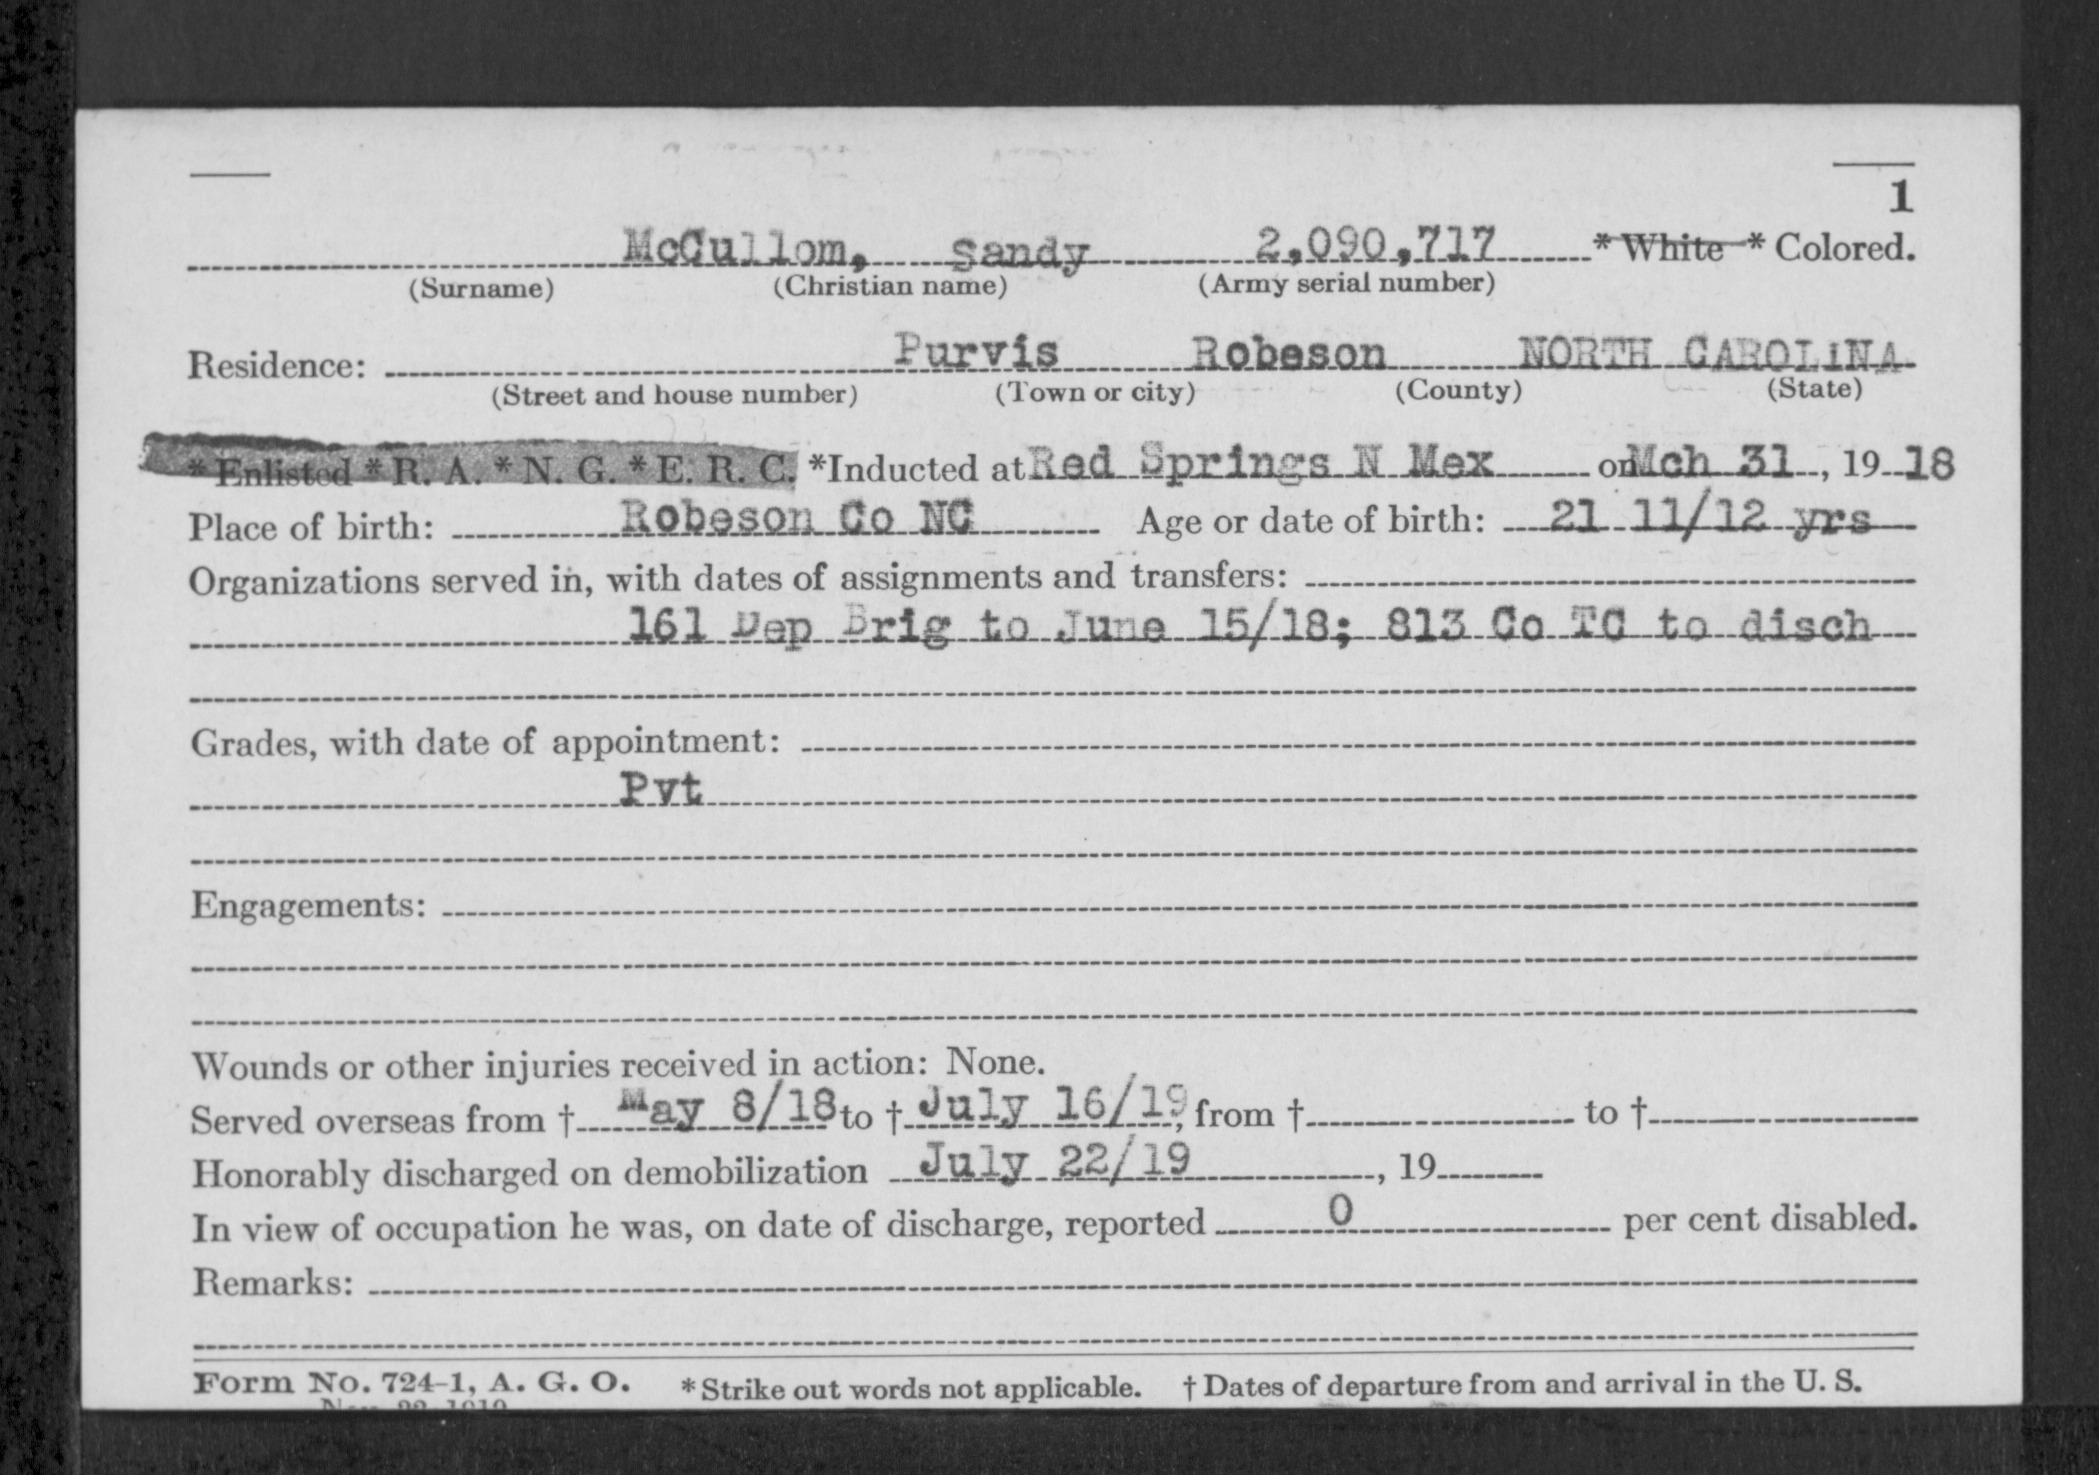 1
McCullom, Sandy 2,090,717 * White * Colored.
(Surname) (Christian name) (Army serial number)
Residence: Purvis Robeson NORTH CAROLINA
(Street and house number) (Town or city) (County) (State)
* Enlisted * R. A. * N. G. * E. R. C. *Inducted at Red Springs N Mex on Mch 31, 19 18
Place of birth: Robeson Co NC Age or date of birth: 21 11/12 yrs
Organizations served in, with dates of assignments and transfers:
161 Dep Brig to June 15/18; 813 Co TC to disch
Grades, with date of appointment:
Pvt
Engagements:
Wounds or other injuries received in action: None.
Served overseas from † May 8/18 to † July 16/19, from † to †
Honorably discharged on demobilization July 22/19, 19
In view of occupation he was, on date of discharge, reported 0 per cent disabled.
Remarks:
Form No. 724-1, A. G. O. * Strike out words not applicable. † Dates of departure from and arrival in the U. S.